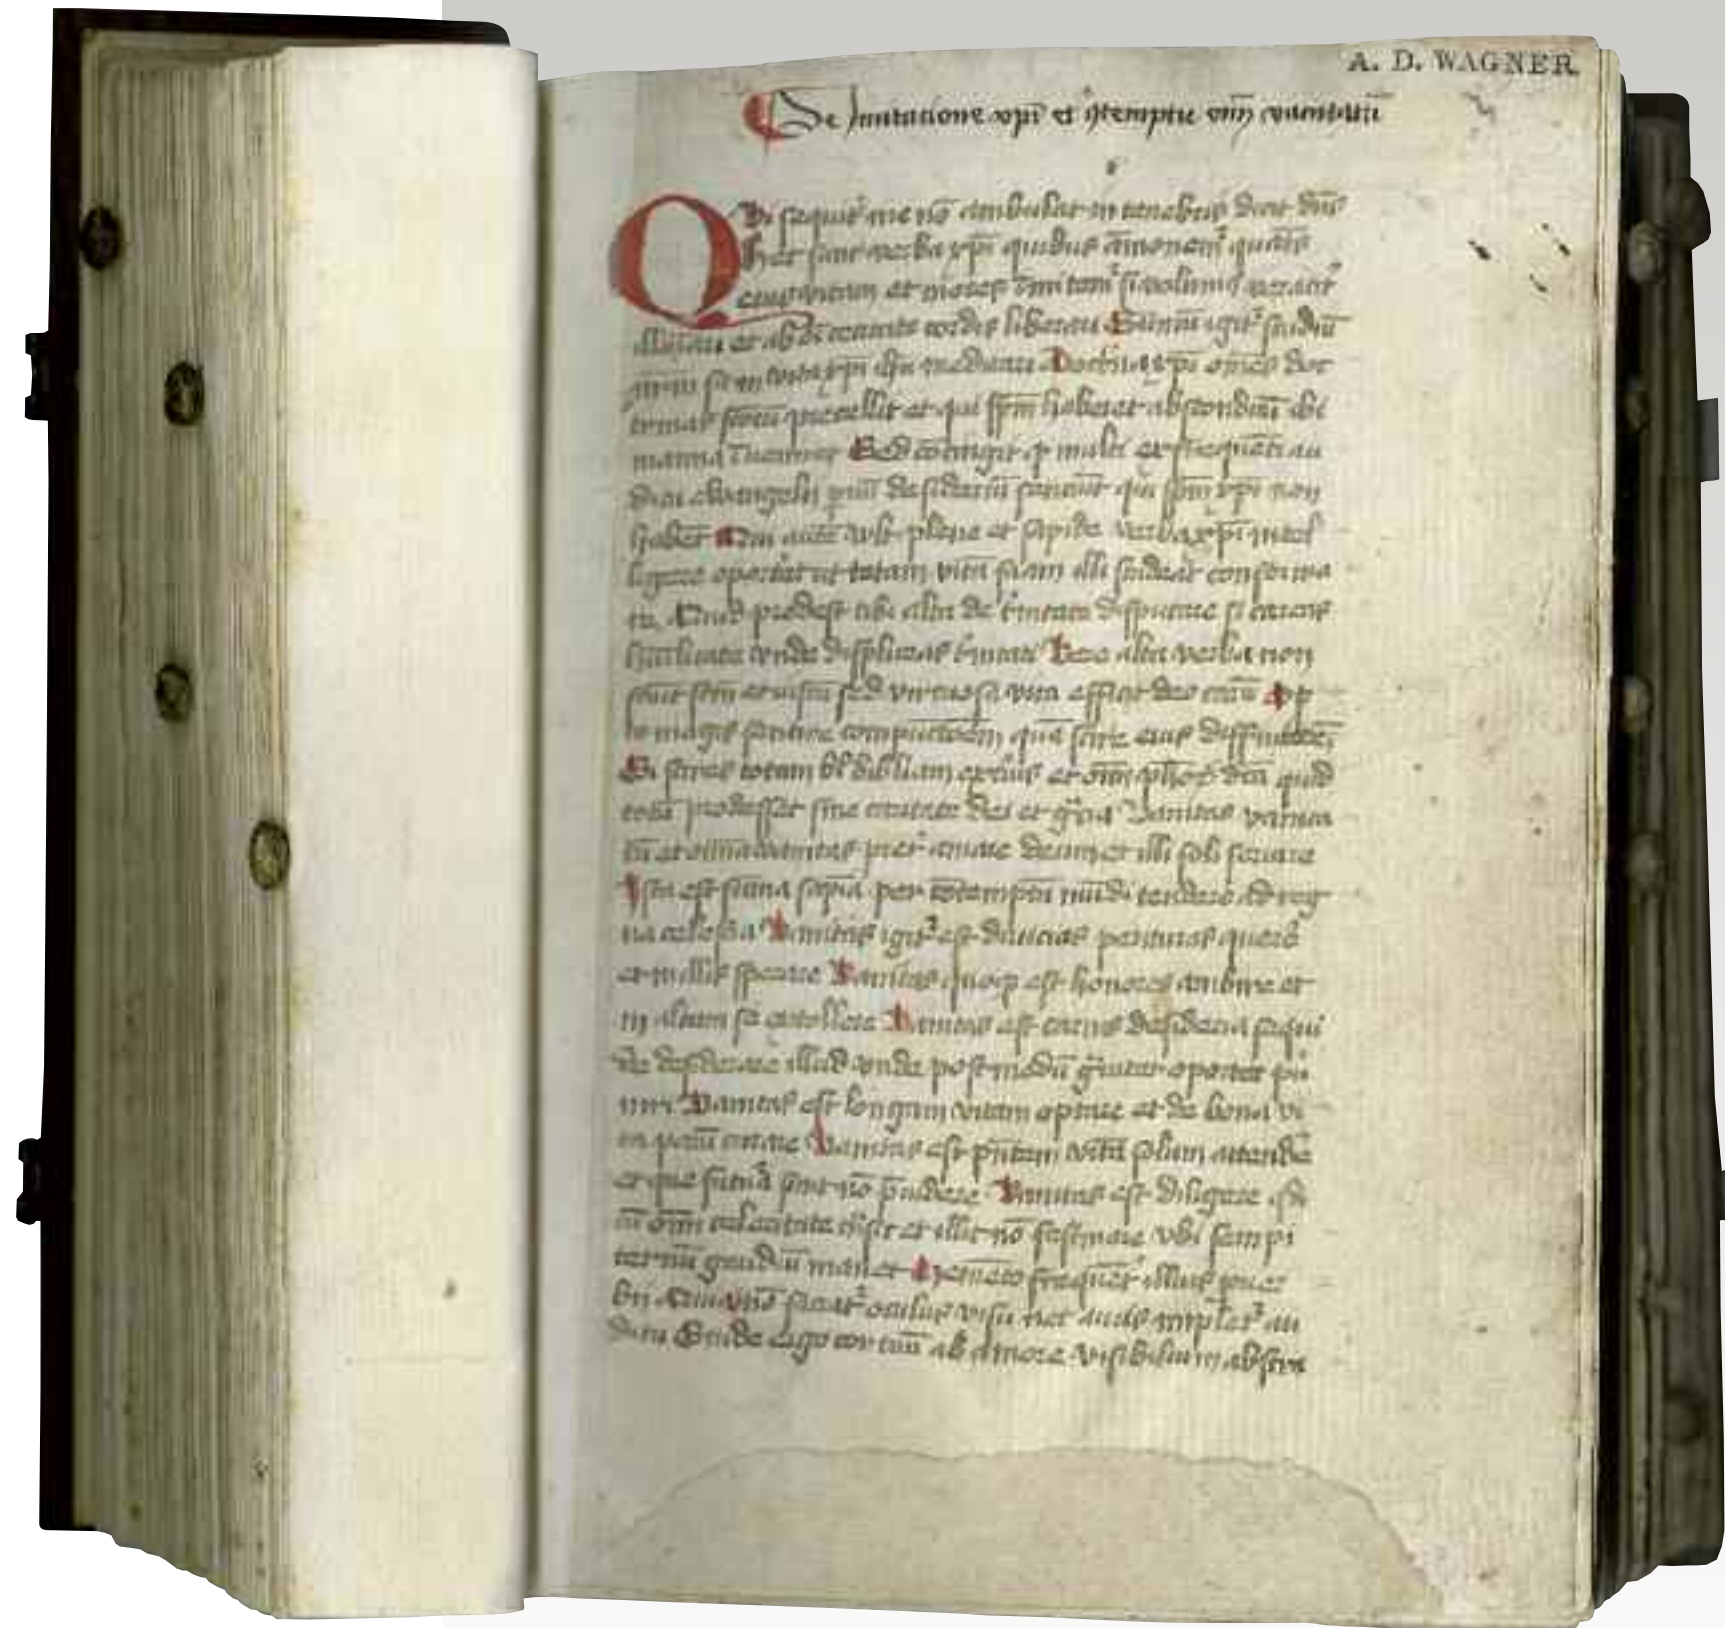 A. D. WAGNER
De Imitacione xpi et 9temptu oim vanitatu
Qvi sequit me no ambulat in tenebris dicit dns
hec sunt verba xpi quibus amonemr quats
eius vitam et mores imitemr si volumus veracitr
illuiari et ab oi cecitate cordis liberari Sumu igitr studiu
nrm sit in vita xpi meditari Doctrina xpi omes doc
trinas scoru precellit et qui spm haberet absconditu ibi
manna inveniret Sed cotingit q multi ex frequeti au
ditu ewangelij desideriu senciut qui spm xpi non
habet Qui aute vult plene et sapide verba xpi intel
ligere oportet ut totam vita suam illi studeat conforma
re. Quid prodest tibi alta de trinitate disputare si careas
humilitate unde displiceas trinitati Vere alta verba non
faciut scm et iustu sed virtuosa vita efficit deo caru Op
to magis sentire compuctoem qua scire eius diffinitoem
Si scires totam bibliam exterius et oim phorum dca quid
totu prodesset sine caritate dei et gra Vanitas vanita
tu et omnia vanitas preter amare deum et illi soli servire
Ista est suma sapia per cotemptu mudi tendere ad reg
na celestia Vanitas igitr est divicias perituras querere
et in illis sperare Vanitas quoqz est honores ambire et
in altum se extollere Vanitas est carnis desideria sequi
et desiderare illud unde postmodu gviter oportet pu
niri Vanitas est longam vitam optare et de bona vi
ta paru curare Vanitas est pntem vita solum attende
et que futura sunt no pvidere Vanitas est diligere qd
cu oim celeritate tnsit et illic no festinare ubi sempi
ternu gaudiu manet Memeto frequeter illius prover
bii Quia no saciatr oculus visu nec auris impletr au
ditu Stude ergo cor tuu ab amore visibilium abstra